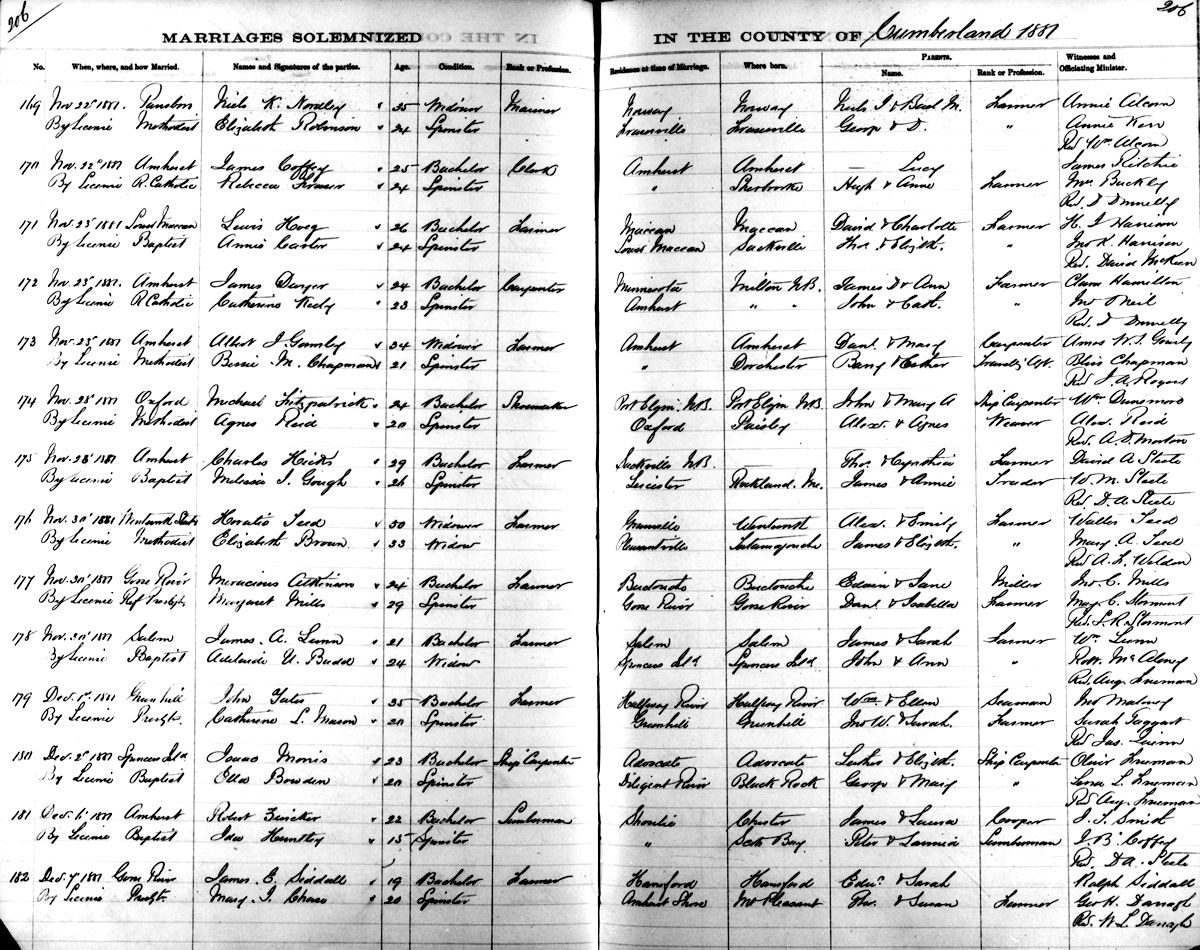 206 206
MARRIAGES SOLEMNIZED IN THE COUNTY OF Cumberland 1881
No. When, where, and how Married. Names and Signatures of the parties. Age. Condition. Rank or Profession. Residence at time of Marriage. Where born. PARENTS. Name. Rank or Profession. Witnesses and Officiating Minister.
169 Nov 22d 1881. Niels K. Nordley 35 Widower Mariner Norway Norway Farmer Annie Alcorn
By Licence Methodist Elizabeth Robinson 24 Spinster George & D. " Annie Kerr
Rev Wm Alcorn
170 Nov. 22d 1881 Amherst James Coffey 25 Bachelor Clerk Amherst Amherst — Lucy James Ritchie
By Licence R. Catholic Rebecca Fraser 24 Spinster " Sherbrooke Hugh & Anne Farmer Mrs Buckley
Rev. D. Donnelly
171 Nov 23d 1881 Lower Maccan Lewis Hoeg 26 Bachelor Farmer Maccan Maccan David & Charlotte Farmer H. J Harrison
By Licence Baptist Annie Carter 24 Spinster Lower Maccan Sackville Thos. & Elizth. " Jno K. Harrison
Rev. David McKeen
172 Nov 23d 1881. Amherst James 24 Bachelor Carpenter Minnesota Milton N.B. James D & Ann Farmer Clara Hamilton
By Licence R. Catholic Catherine 23 Spinster Amherst " " John & Cath. " Jno O'Neil
Rev. D Donnelly
173 Nov. 23d 1881 Amherst Albert J. 34 Widower Farmer Amherst Amherst Danl. & Mary Carpenter Amos W. I.
By Licence Methodist Bessie M. Chapman 21 Spinster " Dorchester & Esther Bliss Chapman
Rev J. A. Rogers
174 Nov 28d 1881 Oxford Michael Fitzpatrick 24 Bachelor Shoemaker Port Elgin. N.B. Port Elgin N.B. John & Mary A Ship Carpenter Wm. Dunsmore
By Licence Methodist Agnes Reid 20 Spinster Oxford Paisley Alexr. & Agnes Weaver Alex. Reid
Rev. A. D. Morton
175 Nov. 28d 1881 Amherst Charles Hicks 29 Bachelor Farmer Sackville N.B. Thos. & Cynthia Farmer David A Steele
By Licence Baptist Melissa J. Gough 26 Spinster Leicester Rockland. Me. James & Annie Trader W. M. Steele
Rev D. A. Steele
176 Nov. 30d 1881 Horatio Teed 50 Widower Farmer Wentworth Alex. & Emily Farmer Teed
By Licence Methodist Elizabeth Brown 33 Widow Tatamagouche James & Elizth. " Mary A Teed
Rev A. L. Weldon
177 Nov. 30d 1881 Goose River Atkinson 24 Bachelor Farmer Buctouche Buctouche Edwin & Jane Miller Jno. C. Mills
By Licence Ref. Presbyt. Margaret Mills 29 Spinster Goose River Goose River Danl. & Isabella Farmer May C. Stormont
Rev. S. R. Stormont
178 Nov. 30d 1881 Salem James. A. Lunn 21 Bachelor Farmer Salem Salem James & Sarah Farmer Wm. Lunn
By Licence Baptist Adelaide U. Budd 24 Widow Spencers Isld Spencers Isld John & Ann " Robt. McAloney
Rev. Aug. Freeman
179 Dec. 1st 1881 Greenhill John Yates 35 Bachelor Farmer Halfway River Halfway River Wm. & Ellen Seaman Jno Maloney
By Licence Presbt. Catherine L. Mason 20 Spinster Greenhill Greenhill Jno W. & Sarah. Farmer Sarah Taggart
Rev Jas. Quinn
180 Dec. 2d 1881 Spencers Isld Isaac Morris 23 Bachelor Ship Carpenter Advocate Advocate Luther & Elizth. Ship Carpenter Oliver Freeman
By Licence Baptist Ella Bowden 20 Spinster Diligent River Black Rock George & Mary " L. Freeman
Rev Aug. Freeman
181 Dec. 6th 1881 Amherst Robert Zincker 22 Bachelor Lumberman Chester James & Louisa Cooper J. T. Smith
By Licence Baptist Ida Huntley 15 Spinster " Scots Bay Peter & Lavinia Lumberman J. B. Coffey
Rev. D. A. Steele
182 Dec. 7d 1881 Goose River James. E. Siddall 19 Bachelor Farmer Hansford Hansford Edwd. & Sarah Ralph Siddall
By Licence Presbt. Mary J. Chase 20 Spinster Amherst Shore Mt Pleasant Thos. & Susan Farmer Geo H. Danagh
Rev. W L. Danagh